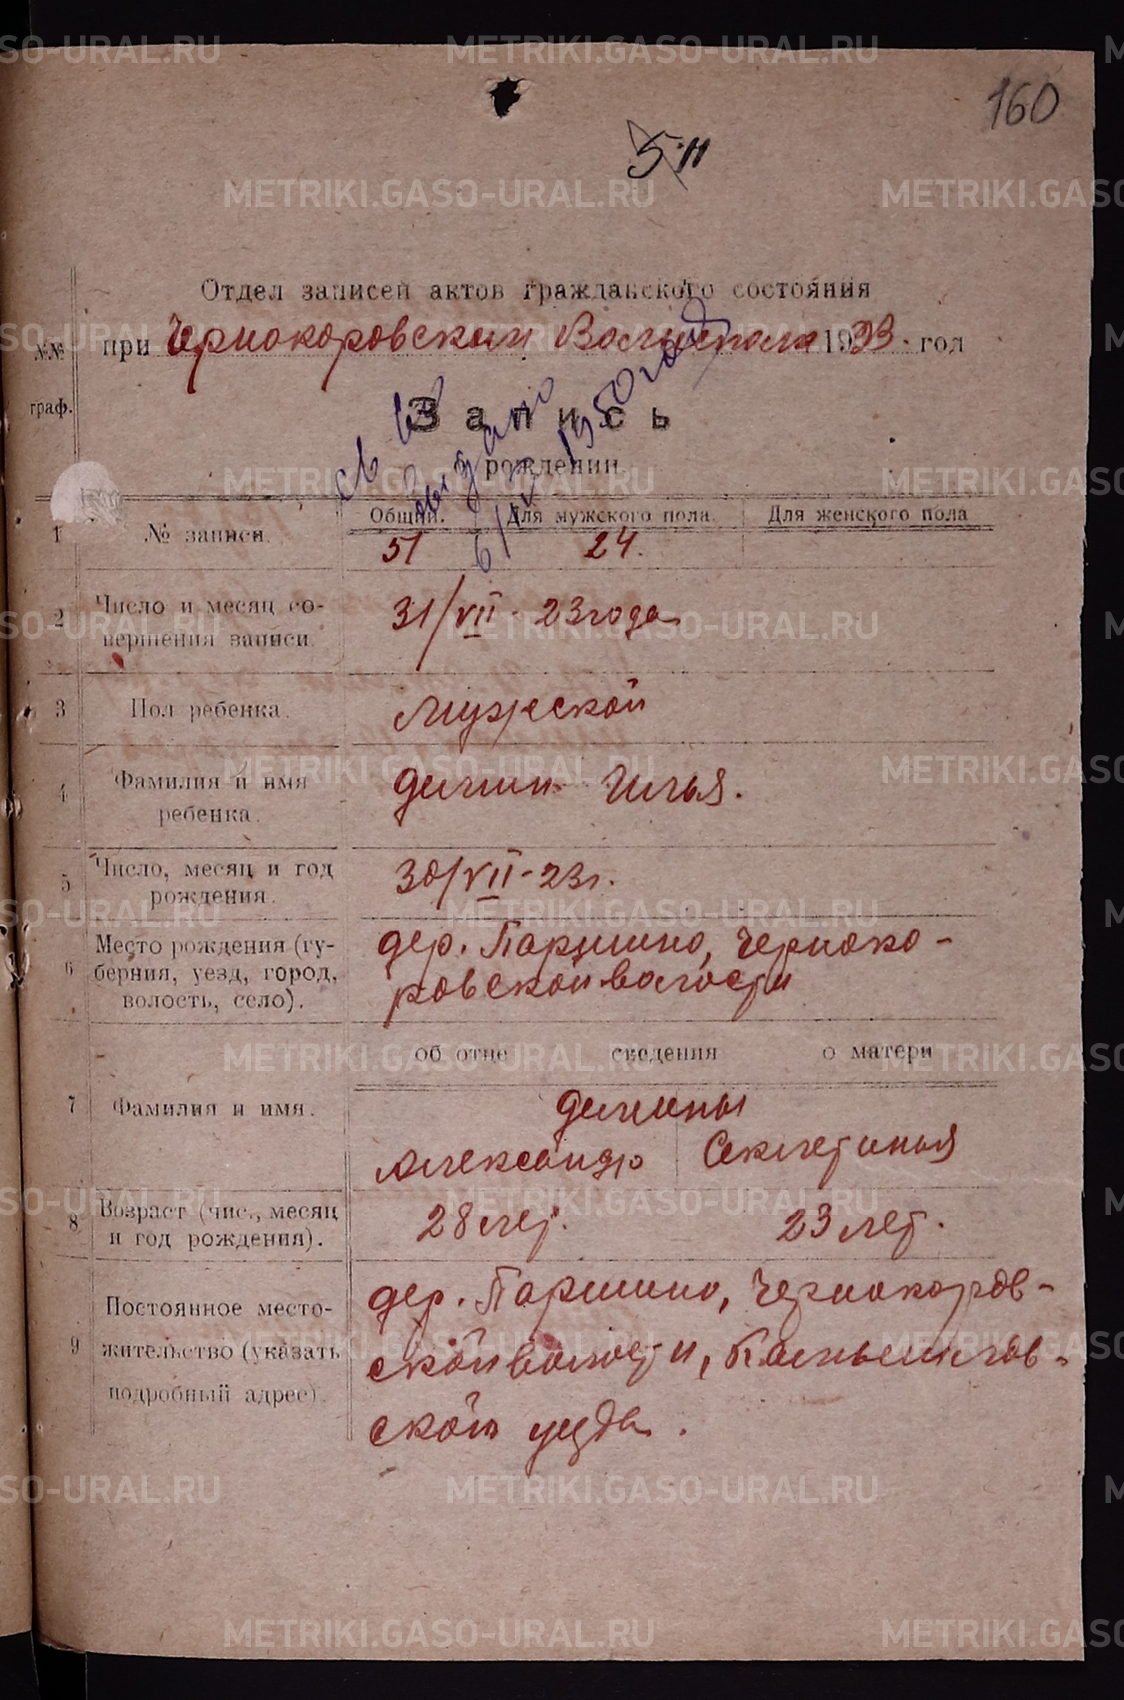 160
5·н
Отдел записей актов гражданского состояния
при Чернокоровском Волисполк 1923 год
№№
граф.
Запись
о рождении
св во
выдано
6/V 1950 года
Общий. Для мужского пола. Для женского пола
1 № записи. 51 24.
2 Число и месяц со-
вершения записи. 31/VII - 23 года
3 Пол ребенка. Мужской
4 Фамилия и имя
ребенка. Илья.
5 Число, месяц и год
рождения. 30/VII - 23г.
6 Место рождения (гу-
берния, уезд, город,
волость, село). дер. Паршино, Черноко-
ровской волости
об отце сведения о матери
7 Фамилия и имя.
Александр Секлетинья
8 Возраст (чис., месяц
и год рождения). 28 лет. 23 лет.
9 Постоянное место-
жительство (указать
подробный адрес). дер. Паршино, Чернокоров-
ской волости, Камышлов-
ского уезда.
METRIKI.GASO-URAL.RU